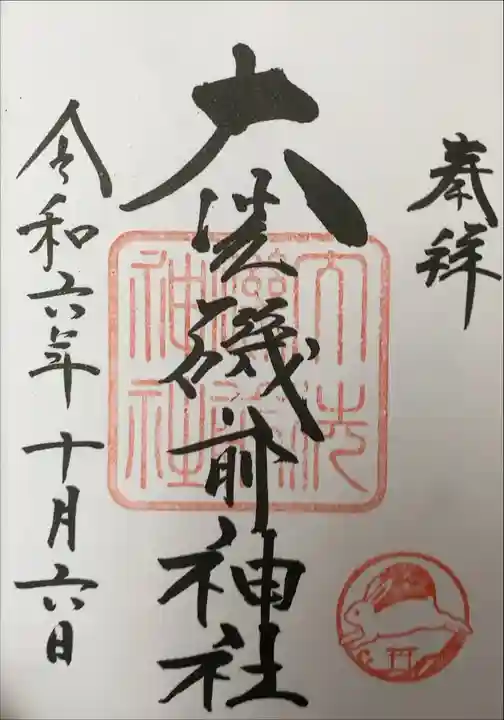 奉拝
大洗磯前神社
大洗磯前神社
令和六年十月六日